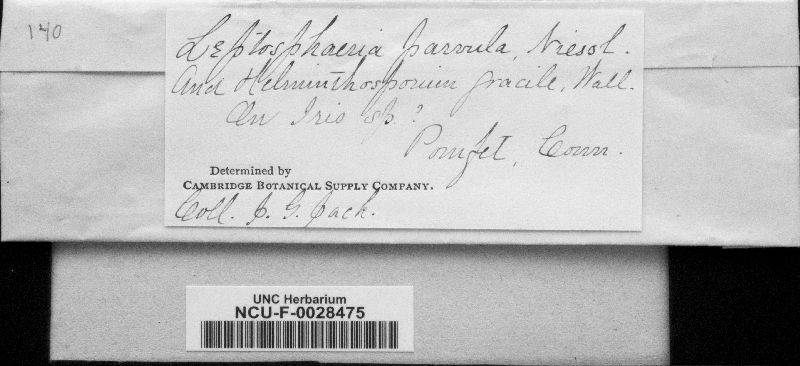 140
Leptosphaeria parvula, Niessl.
And Helminthosporium gracile, Wall.
On Iris sp.?
Pomfet, Conn.
Determined by
CAMBRIDGE BOTANICAL SUPPLY COMPANY.
Coll. J. G. Jack.
UNC Herbarium
NCU-F-0028475